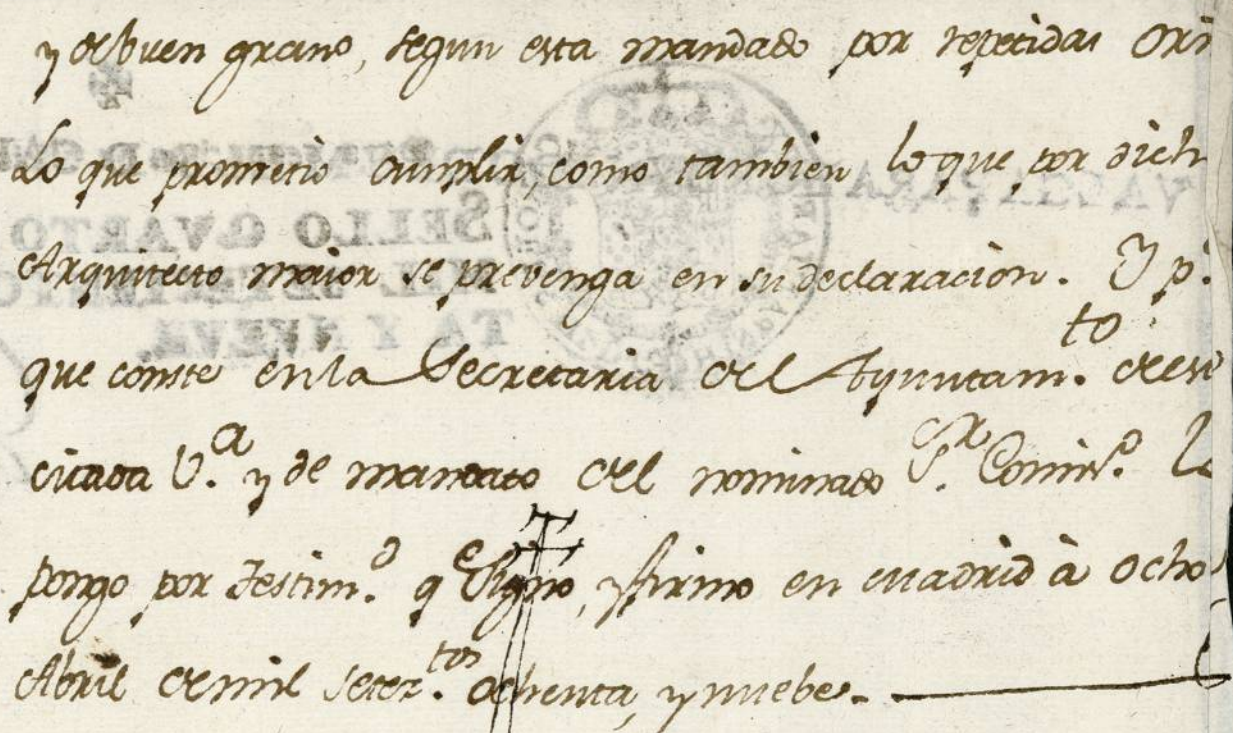 y de buen grano, segun esta mandado por repetidas Ori
Lo que prometiò cumplir, como tambien lo que por dich
Arquitecto maior se prevenga en su declaracion. Y p.ª
que conste en la Secretaria del Ayuntam.to de es
citada V.ª y de mandato del nominado S.r Comis.º lo
pongo por Testim.º q.e signo, y firmo en Madrid à ocho
Abril de mil setez.tos ochenta, y nuebe.
SELLO QVARTO
TA Y NVEVE.